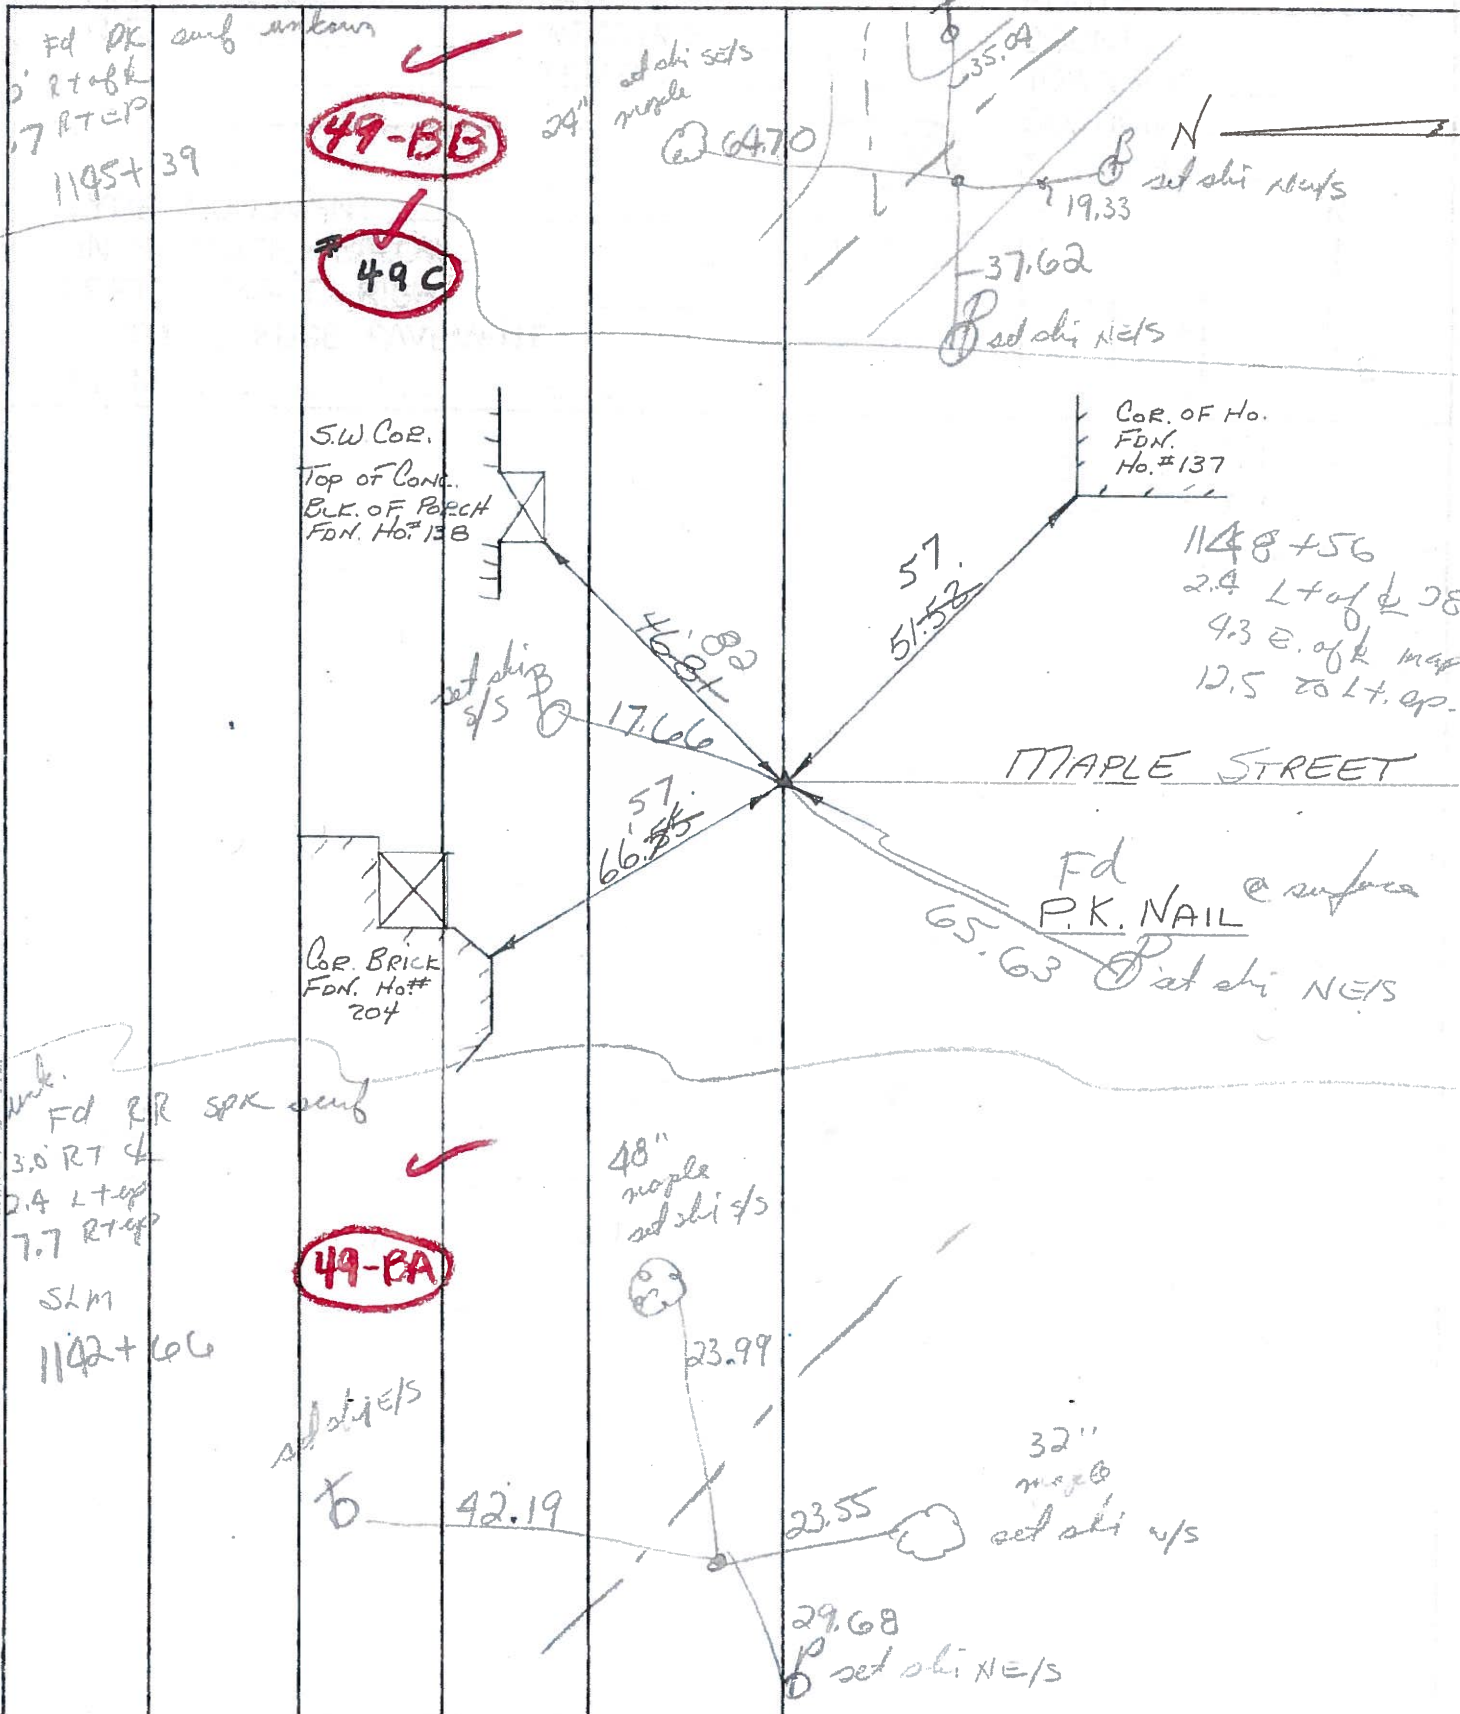 Fd PK surf unkown
Rt of ℄
.7 RT EP
1145+39
49-BB
# 49C
24" maple
set shi SE/S
64.70
35.04
N
set shi NW/S
19.33
37.62
set shi NE/S
S.W. COR.
TOP OF CONC.
BLK. OF PORCH
FDN. HO.# 138
COR. OF HO.
FDN.
HO.# 137
57.
51.52
1148+56
2.4 Lt of ℄
4.3 E. of ℄ map
12.5 to Lt. ep.
46.81
82
set shi
S/S
17.66
MAPLE STREET
57.
66.55
Fd
P.K. NAIL @ surface
65.63
set shi NE/S
COR. BRICK
FDN. HO.#
204
unk.
Fd RR SPK surf
3.0 RT ℄
2.4 Lt ep
7.7 RT ep
SLM
1142+66
49-BA
48"
maple
set shi S/S
23.99
set shi E/S
42.19
32"
maple
set shi W/S
23.55
29.68
set shi NE/S